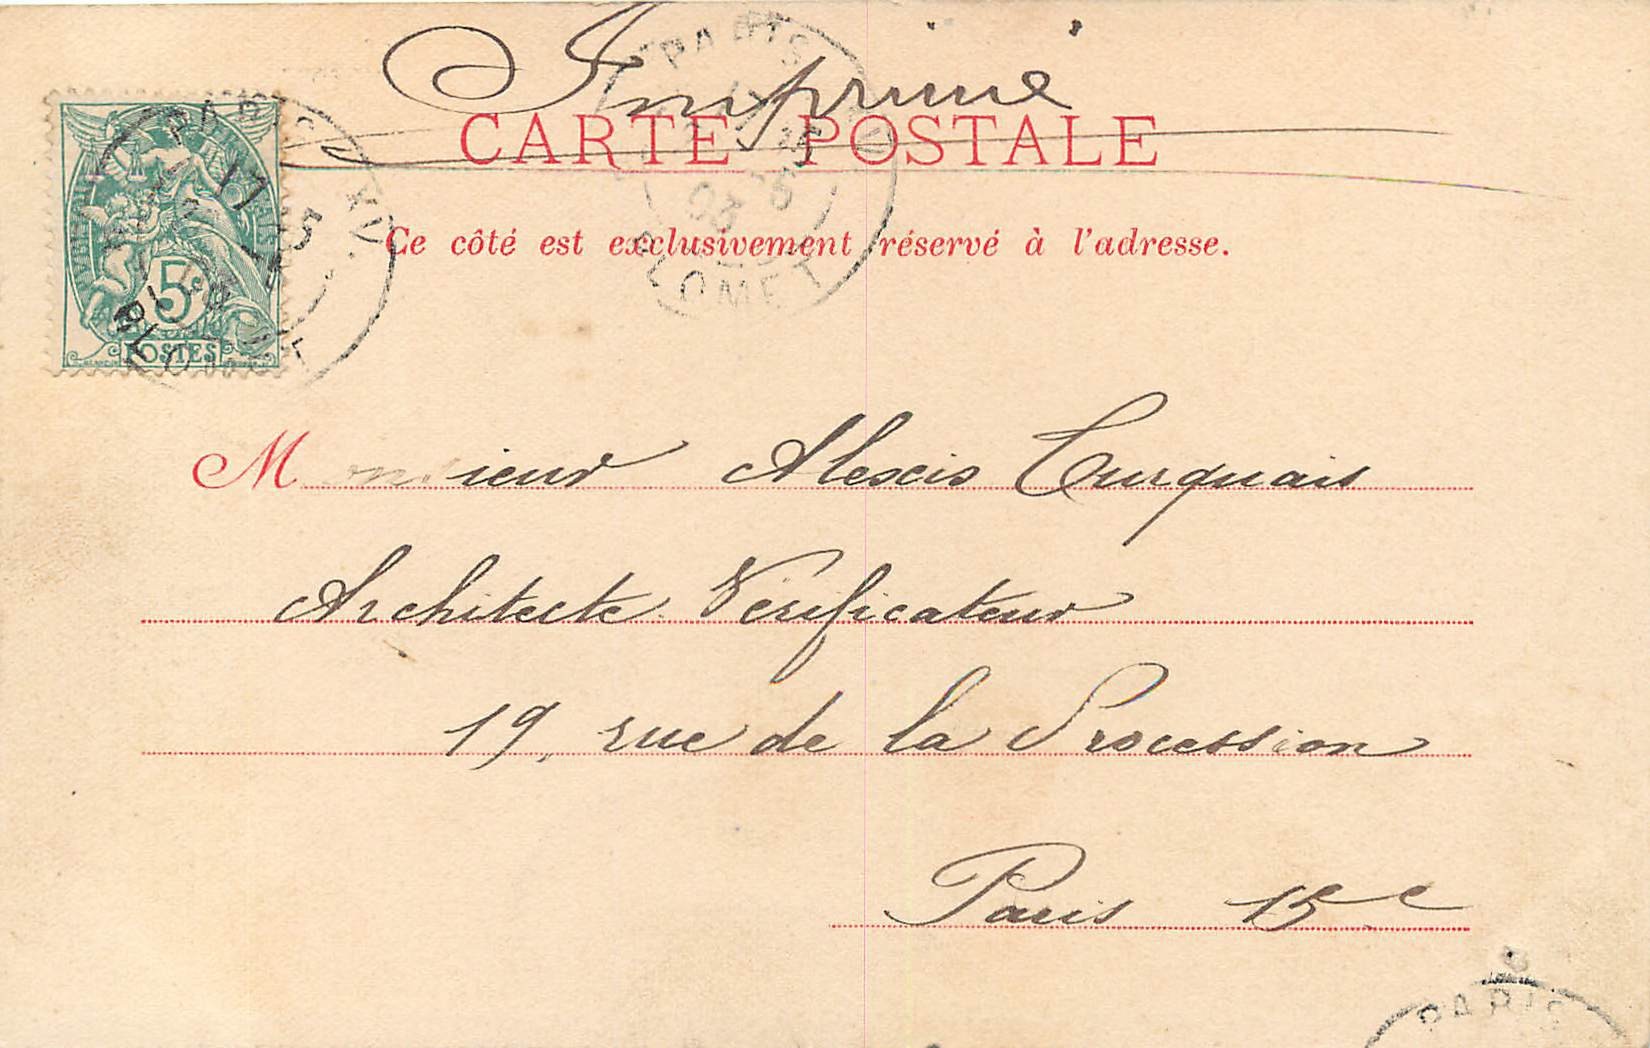 Imprimé
CARTE POSTALE
Ce côté est exclusivement réservé à l'adresse.
PARIS XV
17 15
03
BLOMET
PARIS XV
17 15
BLOMET
5
POSTES
Monsieur Alexis Turquais
Architecte Vérificateur
19, rue de la Procession
Paris 15e
PARIS